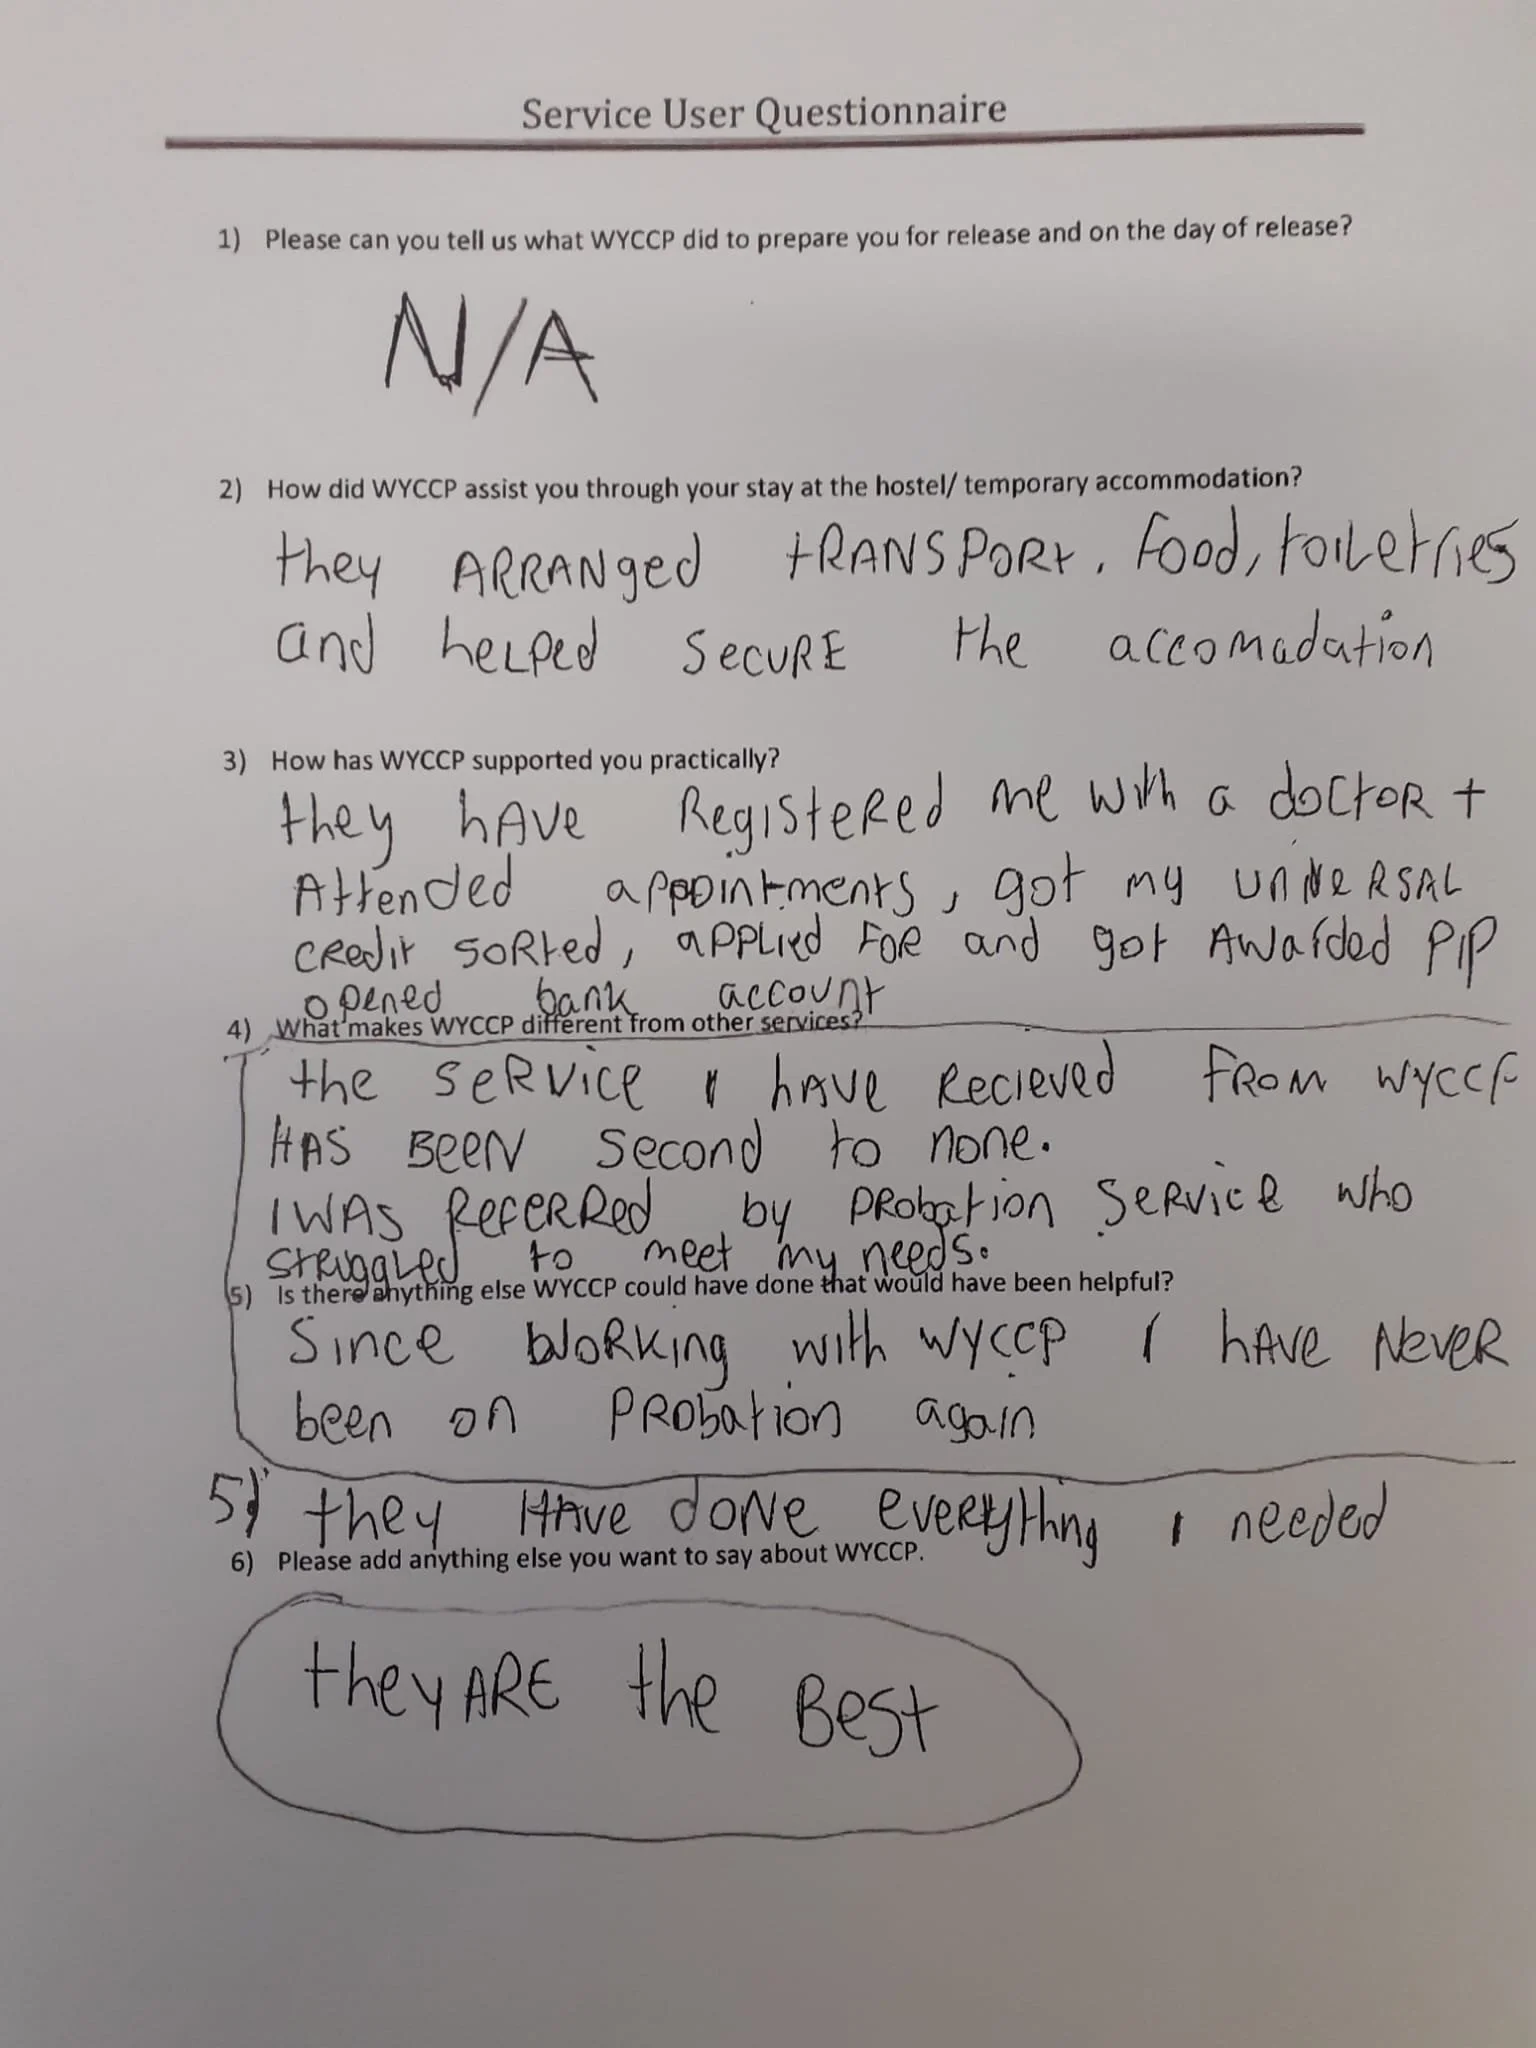 Service User Questionnaire
1) Please can you tell us what WYCCP did to prepare you for release and on the day of release?
N/A
2) How did WYCCP assist you through your stay at the hostel/ temporary accommodation?
they ARRANged tRANSPORt, food, toiletries
and helped SecURE the accomadation
3) How has WYCCP supported you practically?
they hAve RegisteRed me with a doctoR +
Attended appointments, got my UNIVeRSAL
cRedit soRted, applied FOR and got AWarded PIP
opened bank account
4) What makes WYCCP different from other services?
the SeRvice I hAve Recieved fROM WYCCP
HAS BeeN Second to none.
I WAS RefeRRed by pRobation SeRvice who
stRuggLed to meet my needs.
5) Is there anything else WYCCP could have done that would have been helpful?
Since WoRKing with WYCCP I hAve NeveR
been on PRObation again
5) they HAve doNe eveRything I needed
6) Please add anything else you want to say about WYCCP.
they ARE the BeSt